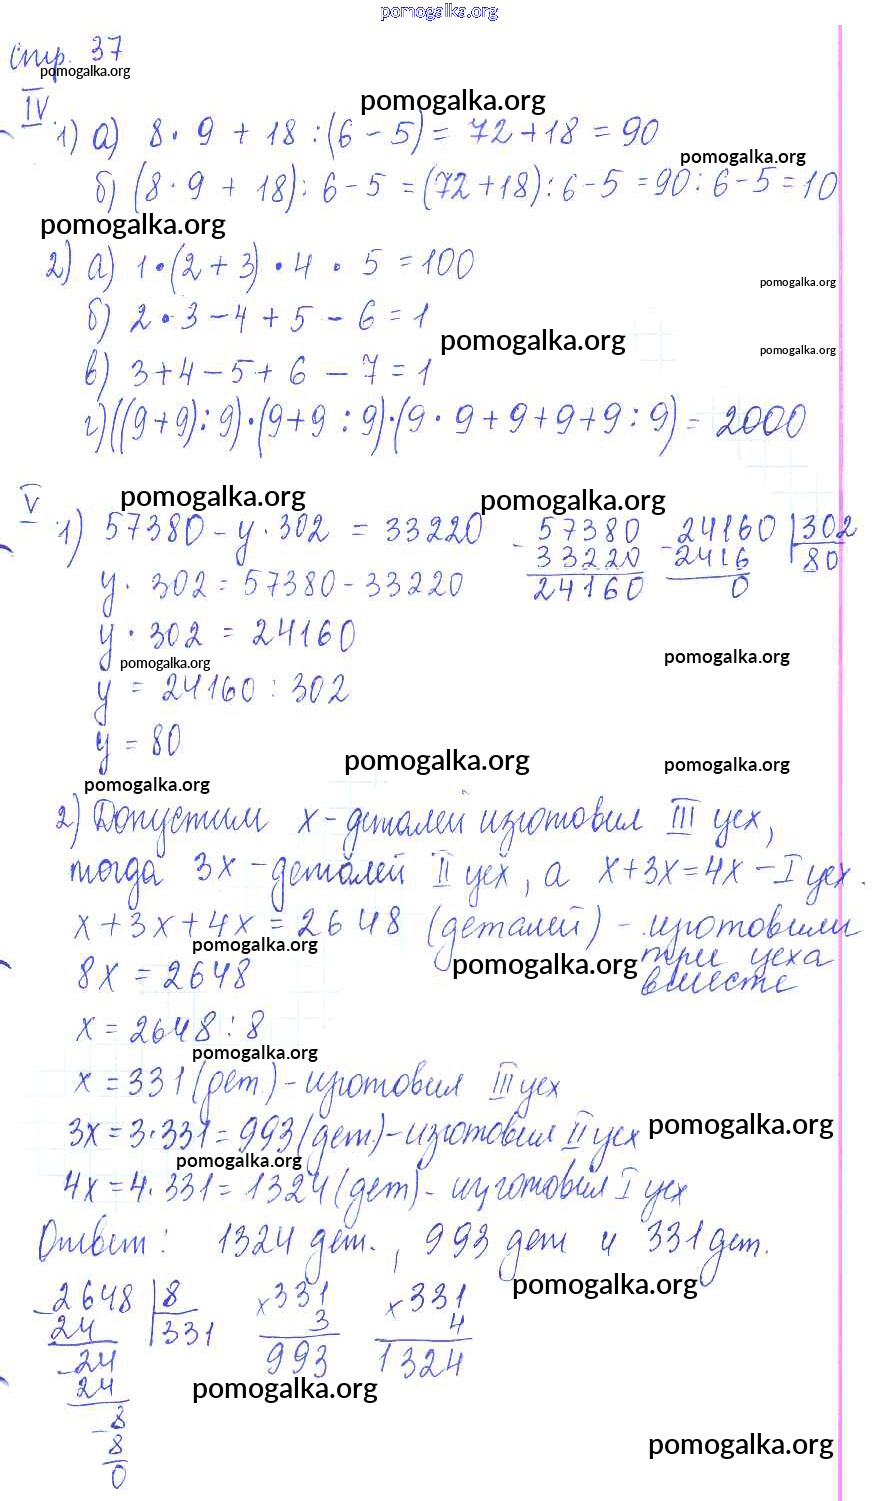 pomogalka.org
стр. 37
pomogalka.org
IV
pomogalka.org
1) а) 8 · 9 + 18 : (6 - 5) = 72 + 18 = 90
pomogalka.org
б) (8 · 9 + 18) : 6 - 5 = (72 + 18) : 6 - 5 = 90 : 6 - 5 = 10
pomogalka.org
2) а) 1 · (2 + 3) · 4 · 5 = 100
pomogalka.org
б) 2 · 3 - 4 + 5 - 6 = 1
pomogalka.org
pomogalka.org
в) 3 + 4 - 5 + 6 - 7 = 1
г) ((9 + 9) : 9) · (9 + 9 : 9) · (9 · 9 + 9 + 9 + 9 : 9) = 2000
V
pomogalka.org
pomogalka.org
1) 57380 - у · 302 = 33220
у · 302 = 57380 - 33220
у · 302 = 24160
pomogalka.org
у = 24160 : 302
у = 80
- 57380
33220
24160
- 24160 | 302
2416 80
0
pomogalka.org
pomogalka.org
pomogalka.org
pomogalka.org
2) Допустим х - деталей изготовил III цех,
тогда 3х - деталей II цех, а х + 3х = 4х - I цех.
х + 3х + 4х = 2648 (деталей) - изготовили
три цеха
вместе
pomogalka.org
pomogalka.org
8х = 2648
х = 2648 : 8
pomogalka.org
х = 331 (дет.) - изготовил III цех
3х = 3 · 331 = 993 (дет.) - изготовил II цех
pomogalka.org
pomogalka.org
4х = 4 · 331 = 1324 (дет) - изготовил I цех
Ответ: 1324 дет., 993 дет и 331 дет.
pomogalka.org
- 2648 | 8
24 331
- 24
24
- 8
8
0
х 331
3
993
х 331
4
1324
pomogalka.org
pomogalka.org